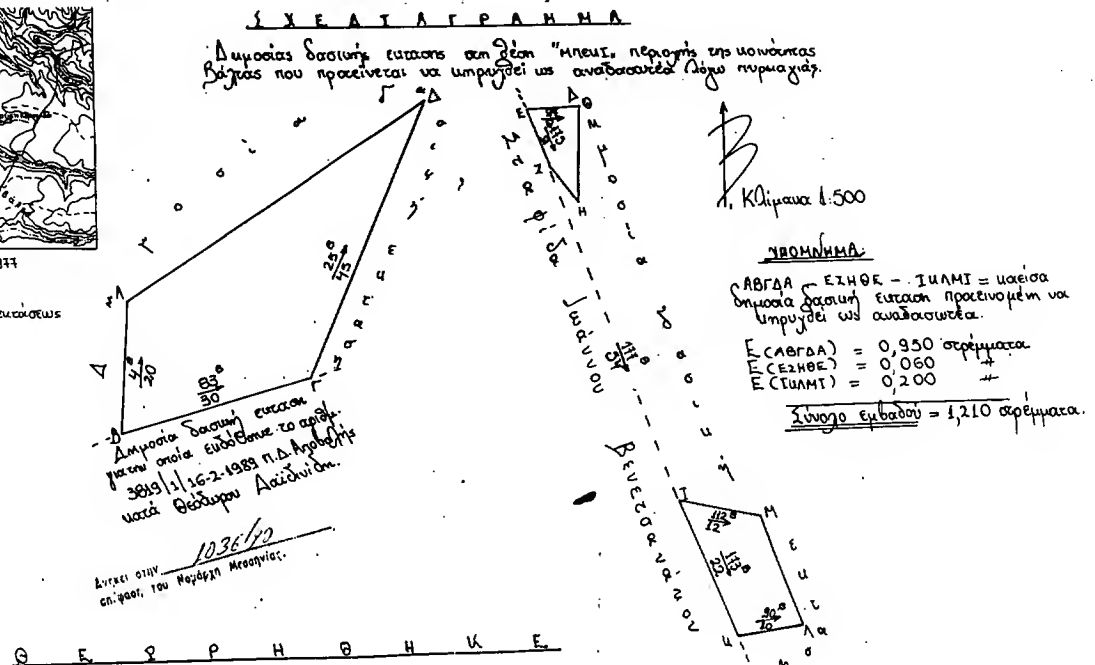 ΣΧΕΔΙΑΓΡΑΜΜΑ
Δημοσίας δασικής έκτασης στη θέση "ΜΠΕΚΙ" περιοχής της κοινότητας
Βάλτας που προτείνεται να κηρυχθεί ως αναδασωτέα λόγω πυρκαγιάς.
977
εκτάσεως
Α
Β
Γ
Δ
Δασική έκταση
Δημοσία
4
20
83
30
25
45
Δημοσία δασική έκταση
για την οποία εκδόθηκε το αριθμ.
3819/1/16-2-1989 Π.Δ. Αποβολής
κατά Θεόδωρου
1036/90
Ανήκει στην
απόφαση του Νομάρχη Μεσσηνίας.
ΘΕΩΡΗΘΗΚΕ
Ε
Θ
Ζ
Η
Μερίδα Ιωάννου
177
54
Δημοσία δασική έκταση
Ι
Μ
Κ
Λ
112
12
173
22
90
10
Β
Κλίμακα 1:500
ΥΠΟΜΝΗΜΑ:
ΑΒΓΔΑ - ΕΖΗΘΕ - ΙΚΛΜΙ = καείσα
δημοσία δασική έκταση προτεινομένη να
κηρυχθεί ως αναδασωτέα.
Ε(ΑΒΓΔΑ) = 0,950 στρέμματα
Ε(ΕΖΗΘΕ) = 0,060 〃
Ε(ΙΚΛΜΙ) = 0,200 〃
Σύνολο εμβαδού = 1,210 στρέμματα.